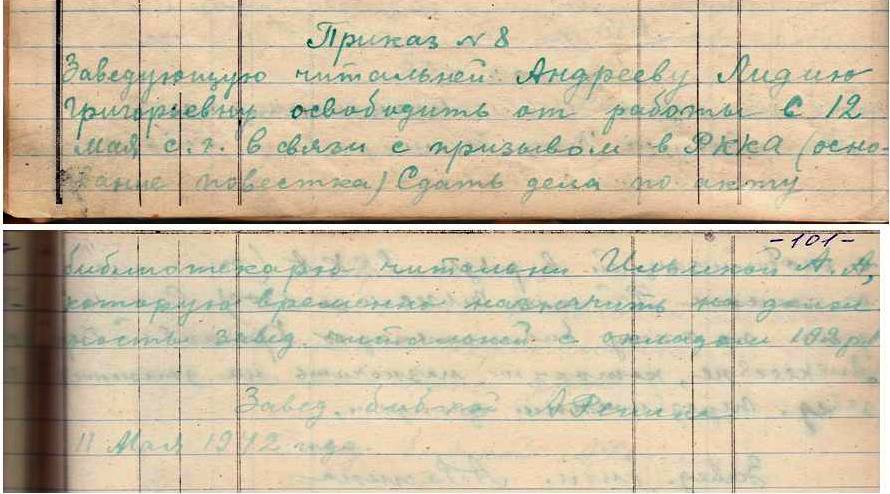 Приказ № 8
Заведующую читальней Андрееву Лидию
Григорьевну освободить от работы с 12
мая с.г. в связи с призывом в РККА (осно-
вание повестка) Сдать дела по акту
-101-
библиотекарю читальни Ильиной А. А,
которую временно назначить на долж
ность завед. читальней с окладом
Завед. библ-кой
11 Мая 1942 года.